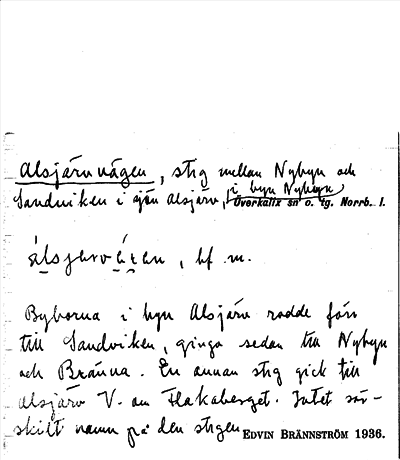 Alsjärvvägen, stig mellan Nybyn och
Sandviken i sjön Alsjärv, i byn Nybyn
Överkalix sn o. tg. Norrb. l.
bf m.
Byborna i byn Alsjärv rodde förr
till Sandviken, gingo sedan till Nybyn
och Bränna. En annan stig gick till
Alsjärv V. om Flakaberget. Intet sär-
skilt namn på den stigen
EDVIN BRÄNNSTRÖM 1936.